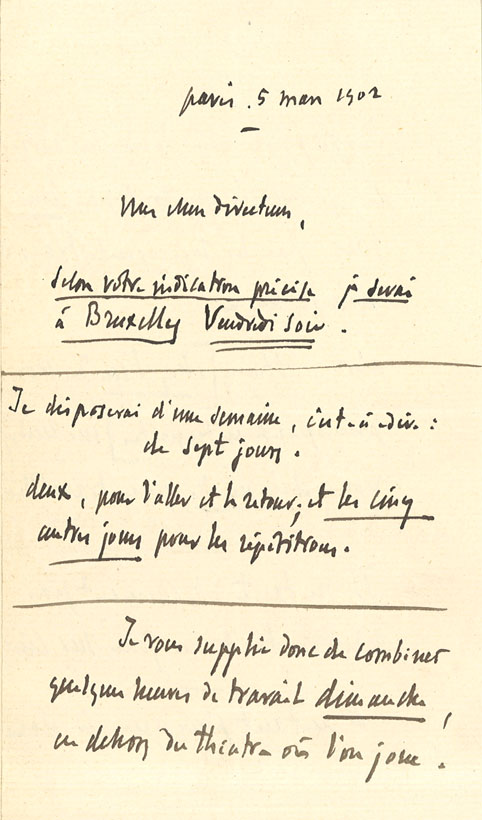 paris. 5 mars 1902
Mon cher directeur,
Selon votre indication précise je serai
à Bruxelles Vendredi soir.
Je disposerai d'une semaine, c'est-à-dire :
de sept jours.
deux, pour l'aller et le retour; et les cinq
autres jours pour les répétitions.
Je vous supplie donc de combiner
quelques heures de travail dimanche,
en dehors du theatre où l'on joue.